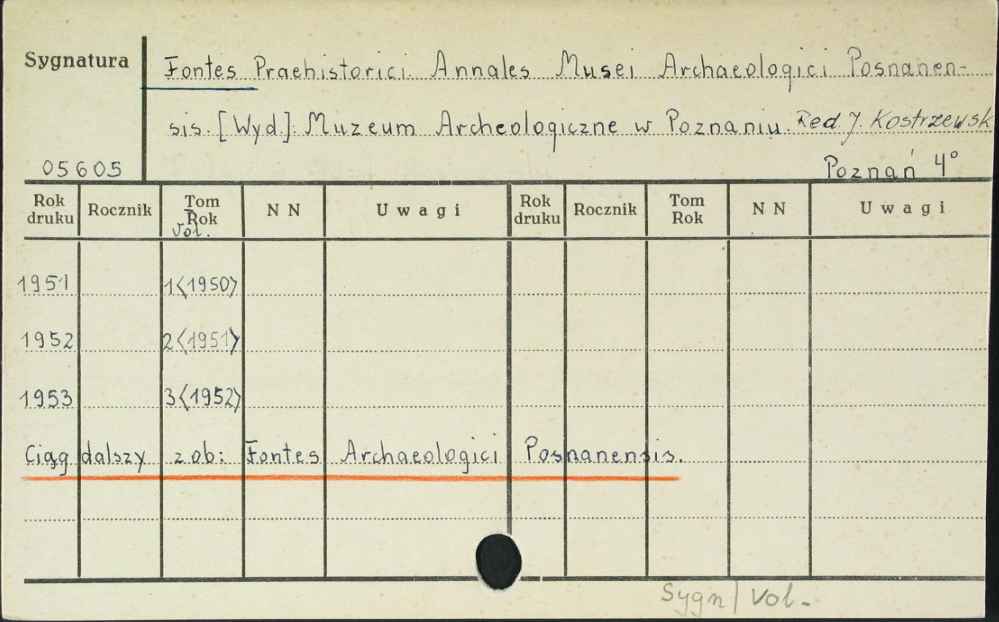 Sygnatura
Fontes Praehistorici. Annales Musei Archaeologici Posnanen-
sis. [Wyd.]: Muzeum Archeologiczne w Poznaniu. Red. J. Kostrzewsk
05605
Poznań 4°
Rok druku Rocznik Tom Rok Vol. N N Uwagi Rok druku Rocznik Tom Rok N N Uwagi
1951 1<1950>
1952 2<1951>
1953 3<1952>
Ciąg dalszy zob: Fontes Archaeologici Posnanensis.
Sygn/Vol.